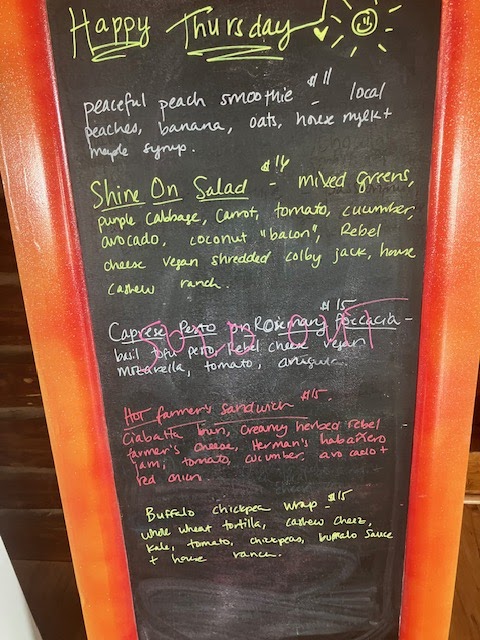 Happy Thursday
peaceful peach smoothie - $11 local
peaches, banana, oats, house mylk +
maple syrup.
Shine On Salad - $14 mixed greens,
purple cabbage, carrot, tomato, cucumber,
avocado, coconut "bacon", Rebel
cheese vegan shredded colby jack, house
cashew ranch.
Caprese Pesto on Rosemary Foccacia - $15
SOLD OUT
basil tofu pesto, Rebel cheese vegan
mozzarella, tomato, arugula.
Hot farmer's sandwich $15.
Ciabatta bun, creamy herbed rebel
farmer's cheese, Herman's habañero
jam, tomato, cucumber, avocado +
red onion
Buffalo chickpea wrap - $15
whole wheat tortilla, cashew cheez,
kale, tomato, chickpeas, buffalo sauce
+ house ranch.